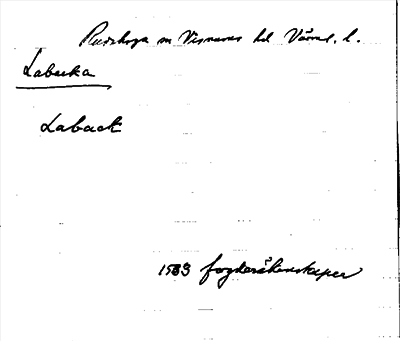 Rudskoga sn Visnums hd Värml. l.
Labacka
Laback
1583 fogderäkenskaper